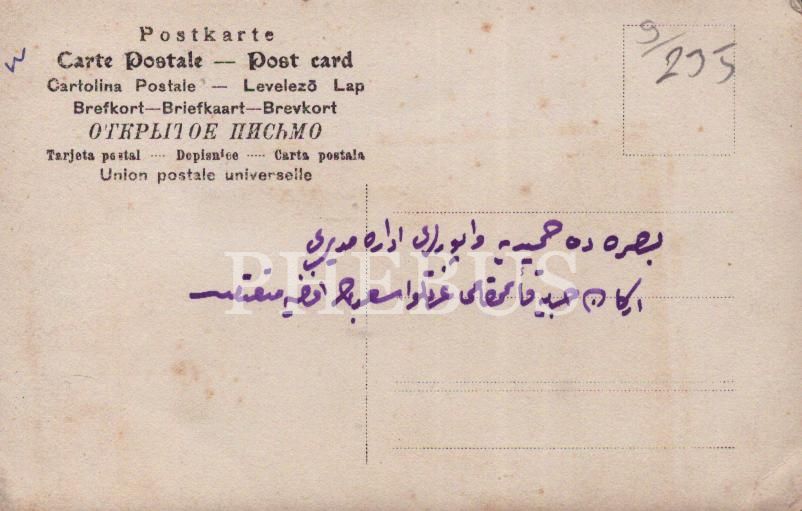 Postkarte
Carte Postale — Post card
Cartolina Postale — Levelező Lap
Brefkort—Briefkaart—Brevkort
ОТКРЫТОЕ ПИСЬМО
Tarjeta postal ···· Dopisnice ···· Carta postala
Union postale universelle
9/295
بصره ده حمیدیه واپورلری اداره مدیری
اركان حربیه قائمقامی عزتلو اسعد
PHEBUS